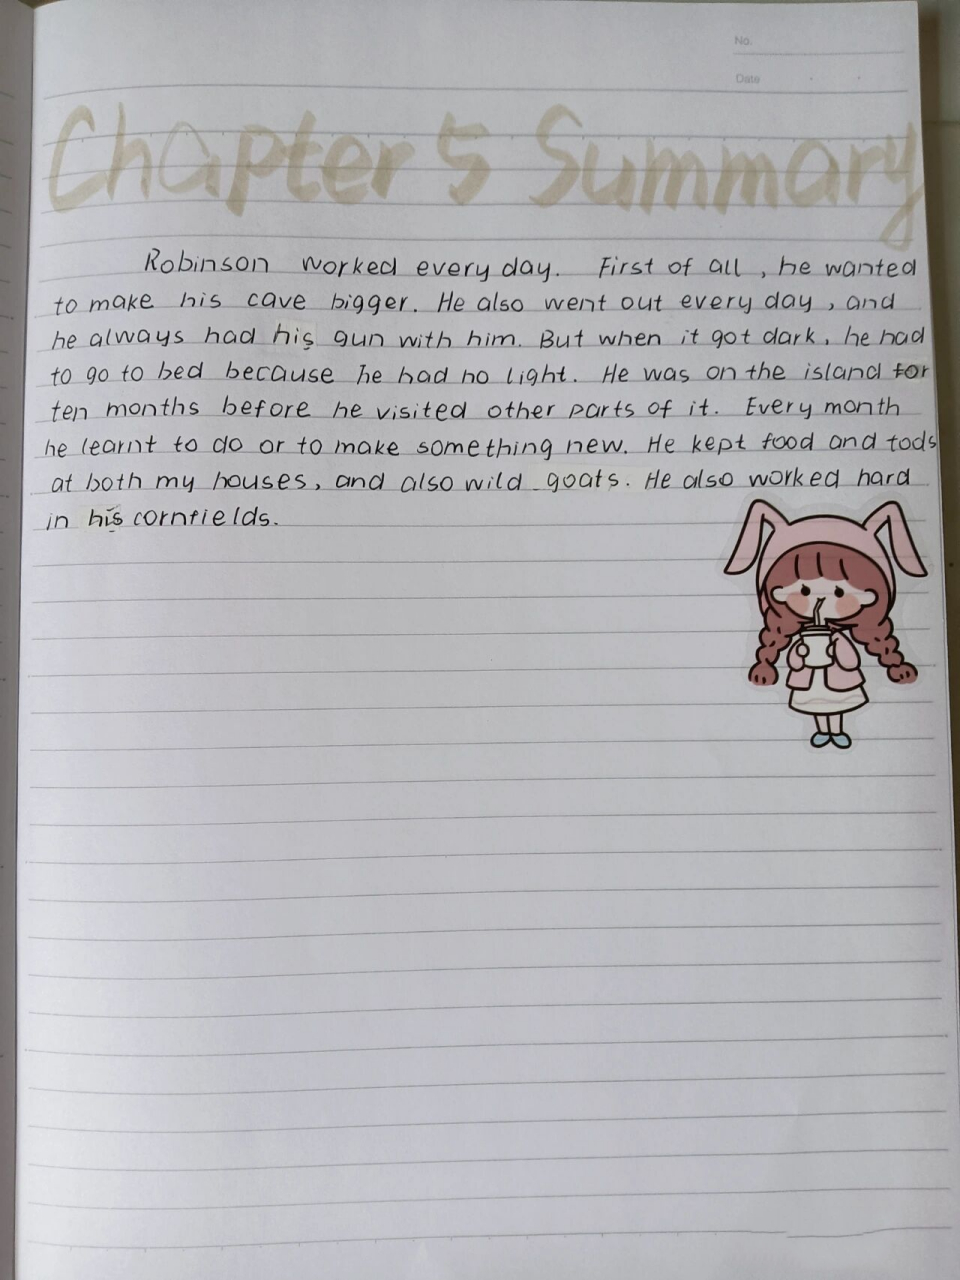 No.
Date
Chapter 5 Summary
Robinson worked every day. First of all, he wanted
to make his cave bigger. He also went out every day, and
he always had his gun with him. But when it got dark, he had
to go to bed because he had no light. He was on the island for
ten months before he visited other parts of it. Every month
he learnt to do or to make something new. He kept food and tools
at both my houses, and also wild goats. He also worked hard
in his cornfields.